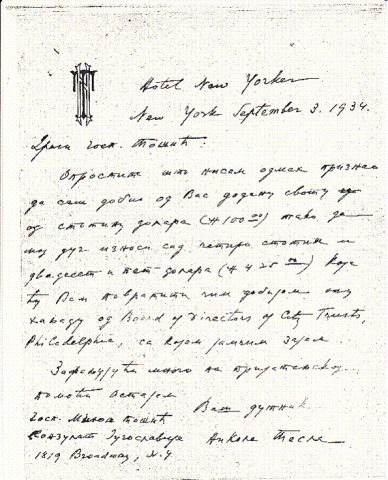 Hotel New Yorker
New York September 3. 1934.
Драги госп. Тошић:
Опростите што нисам одмах признао
да сам добио од Вас додату своту
од стотину долара (# 100 00) тако да
мој дуг износи сад четири стотин и
двадесет и пет долара (# 425 00) које
ћу Вам повратити чим добијем ону
од Board of Directors of City Trusts,
Philadelphia, са којом јамчим зајам.
много на пријатељској
помоћи остајем
Ваш дужник
Госп. Милоја Тошић
Конзулат Југославије Никола Тесла
1819 Broadway, N.Y.